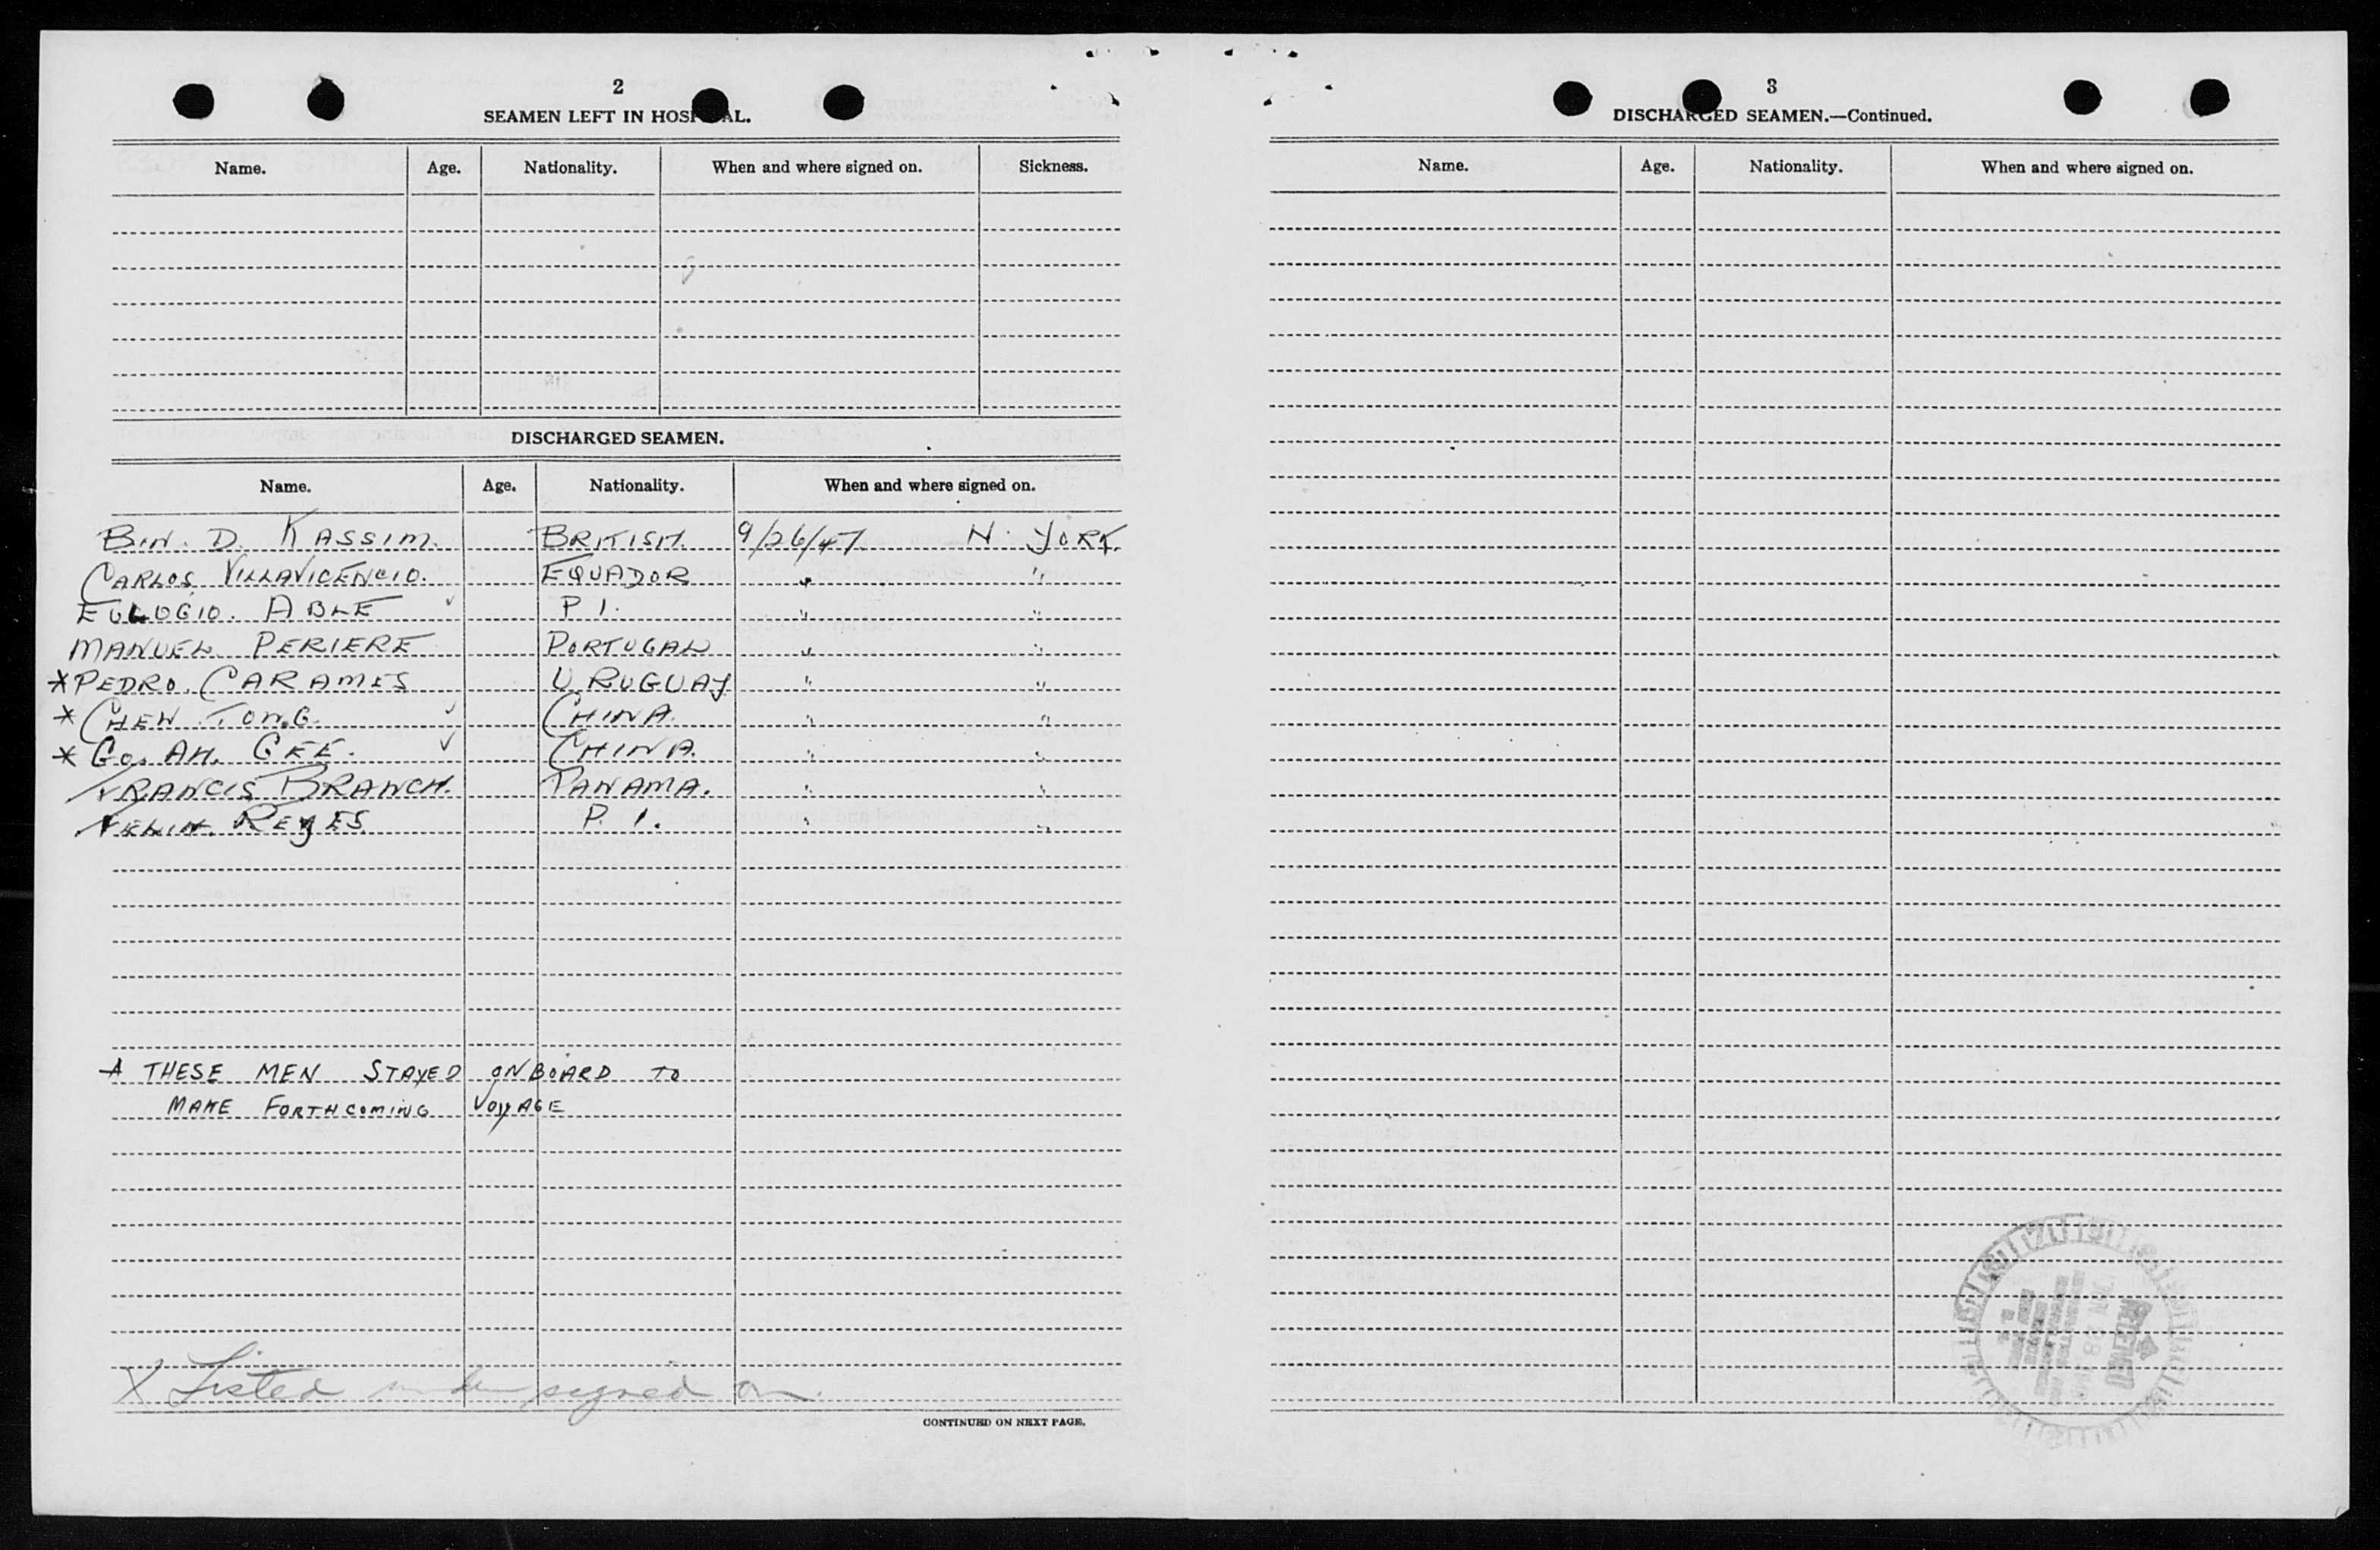 2
SEAMEN LEFT IN HOSPITAL.
Name. Age. Nationality. When and where signed on. Sickness.
DISCHARGED SEAMEN.
Name. Age. Nationality. When and where signed on.
BIN. D. KASSIM. BRITISH. 9/26/47 N. YORK.
CARLOS VILLAVICENCIO. EQUADOR " "
EULOGIO. ABLE ✓ P I. " "
MANUEL PERIERE PORTUGAL " "
* PEDRO. CARAMES URUGUAY " "
* CHEW TONG. ✓ CHINA. " "
* GO. AH. GEE. ✓ CHINA. " "
FRANCIS BRANCH. PANAMA. " "
REYES P. I. " "
* THESE MEN STAYED ONBOARD TO
MAKE FORTHCOMING VOYAGE
X Listed under signed on.
CONTINUED ON NEXT PAGE.
3
DISCHARGED SEAMEN.—Continued.
Name. Age. Nationality. When and where signed on.
RECEIVED